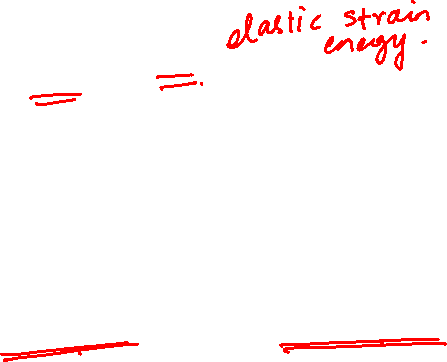 elastic strain
energy.